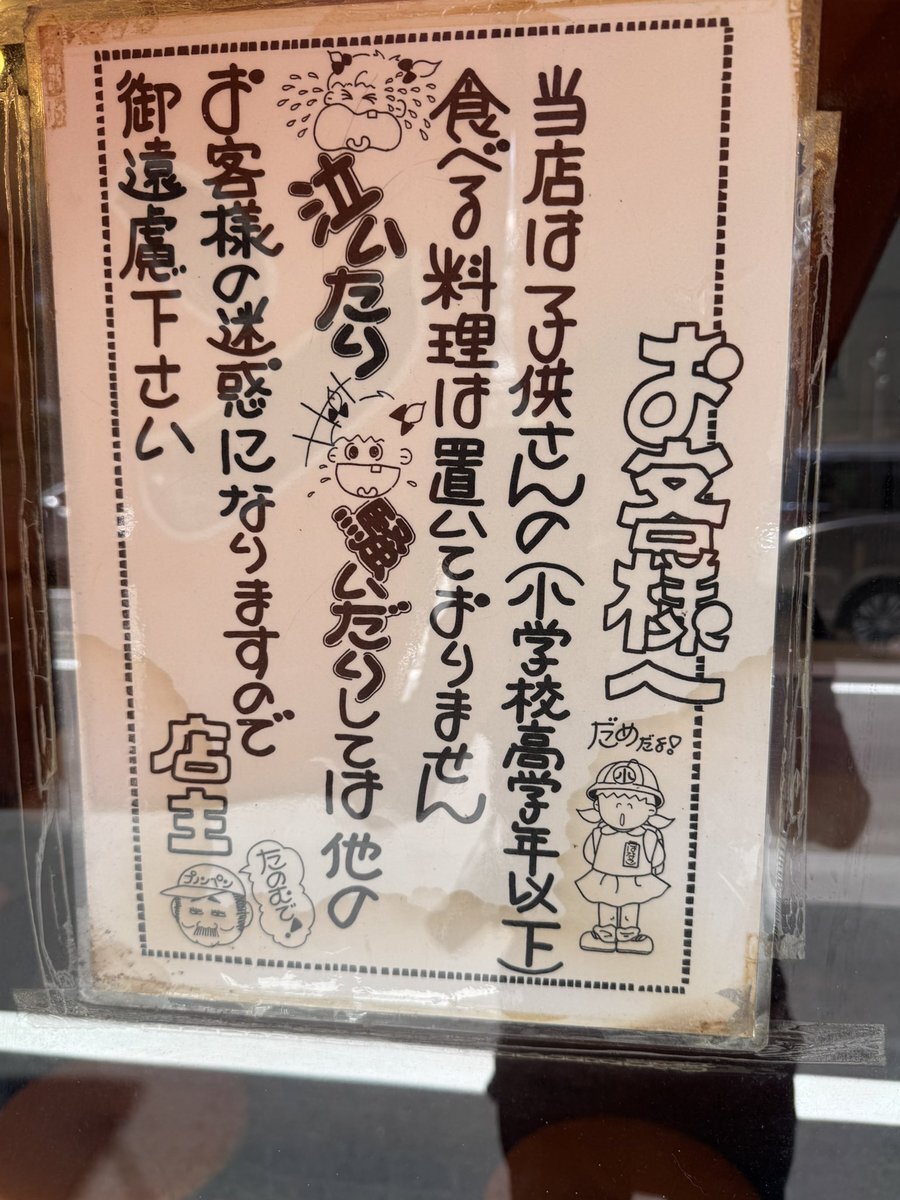 お客様へ
だめだよ!
小
当店は子供さんの(小学校高学年以下)
食べる料理は置いておりません
泣いたり騒いだりしては他の
お客様の迷惑になりますので
御遠慮下さい
店主
プノンペン
たのむで!